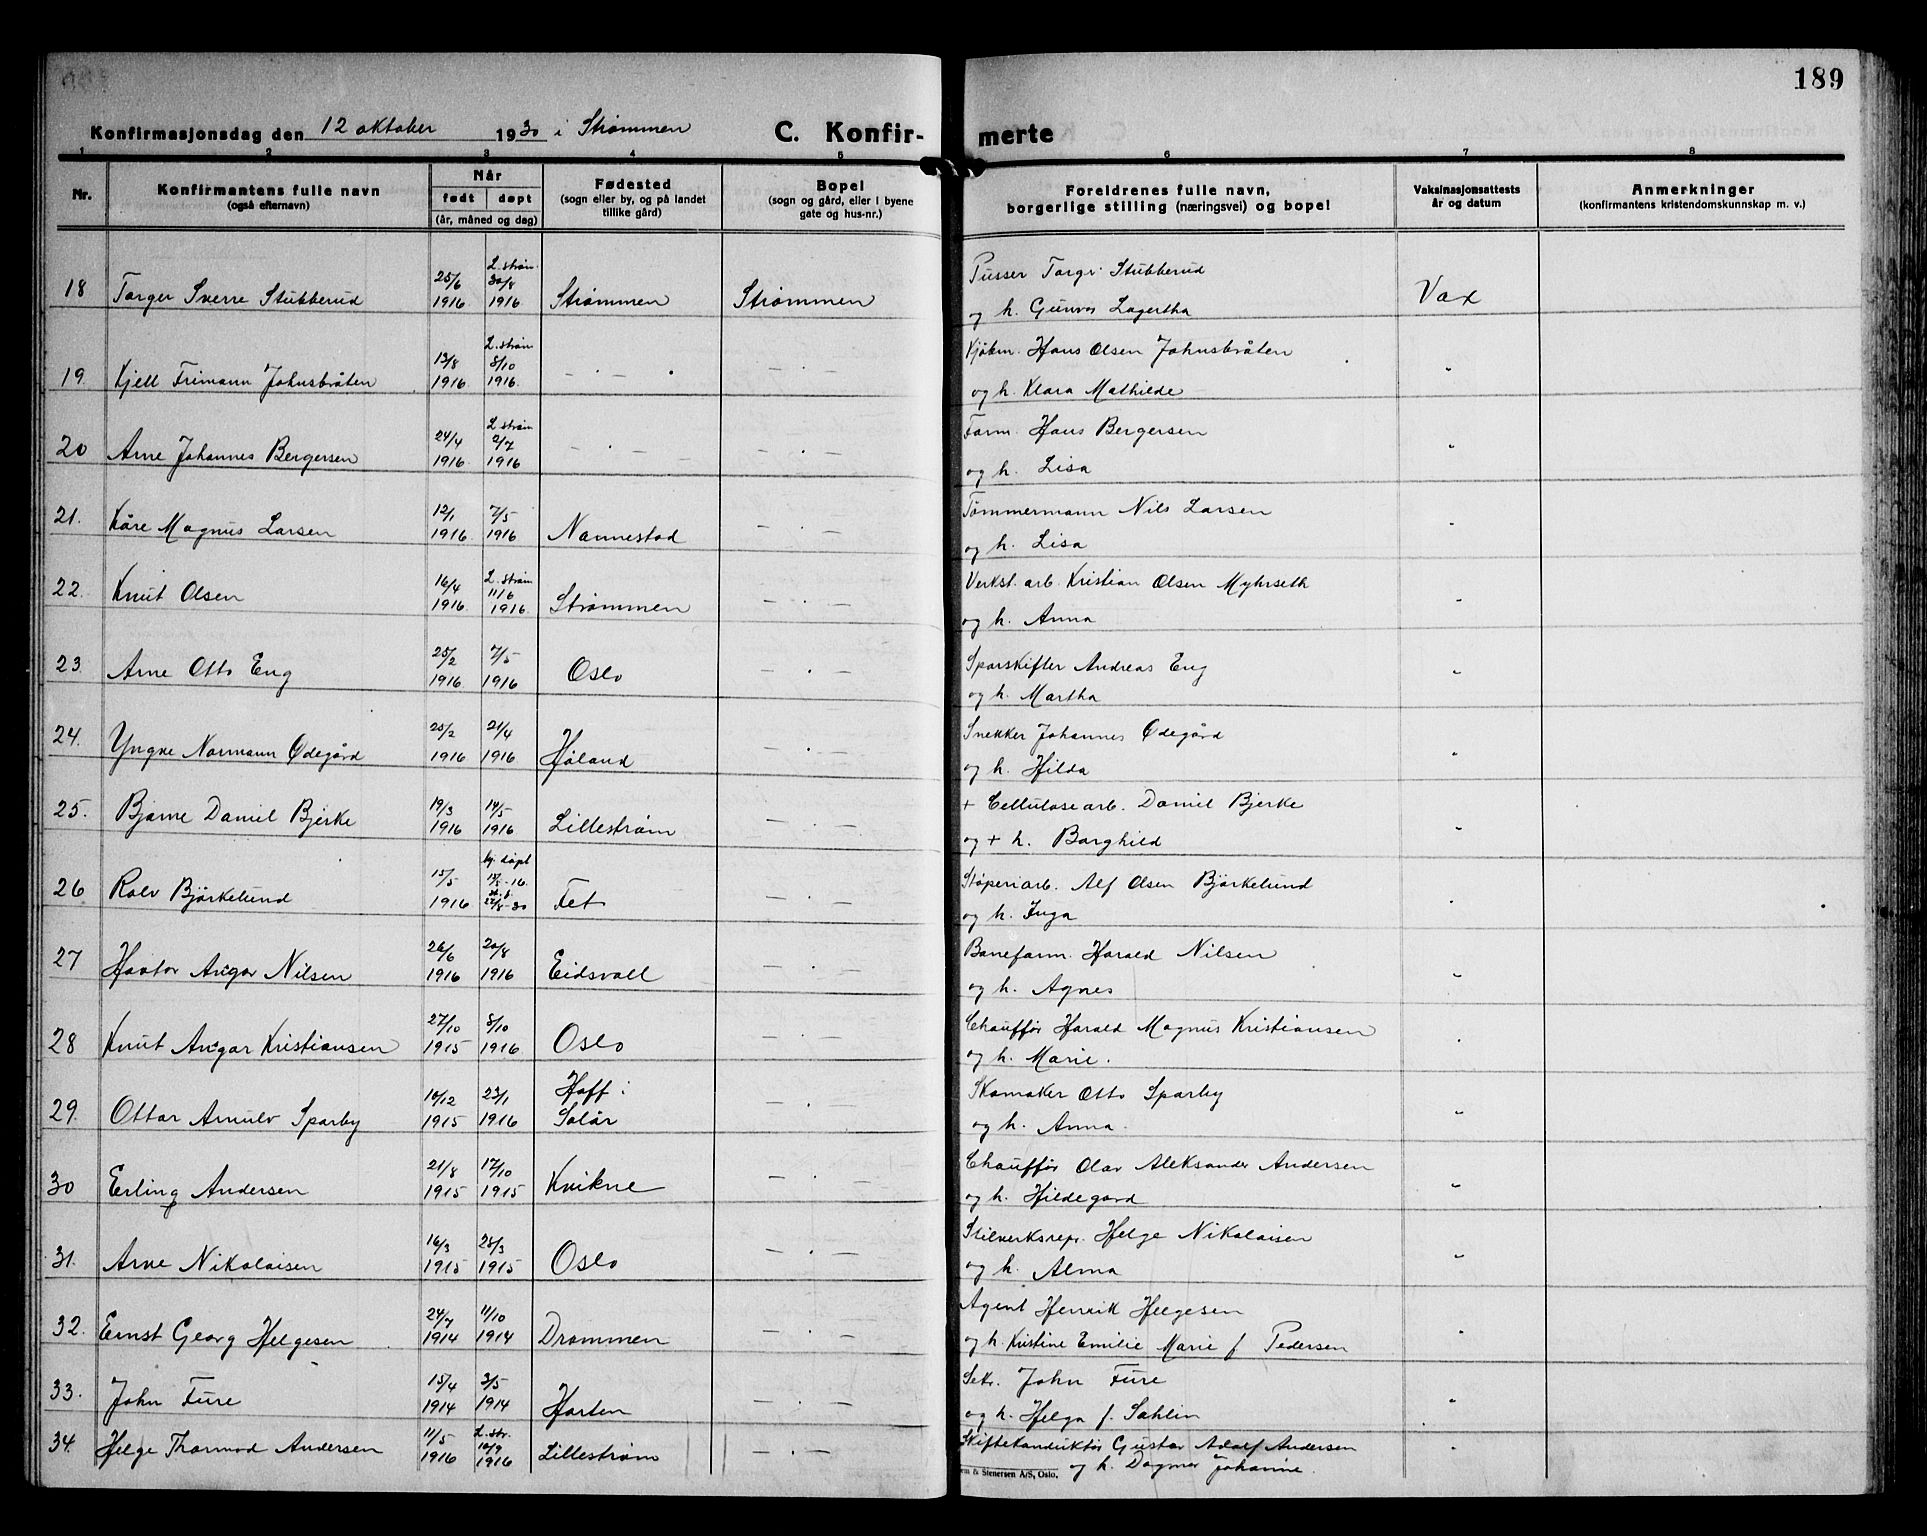 189
Konfirmasjonsdag den 12 oktober 1930 i Strømmen
C. Konfir-
merte
1 2 3 4 5 6 7 8
Nr.
Konfirmantens fulle navn
(også efternavn)
Når
født døpt
(år, måned og dag)
Fødested
(sogn eller by, og på landet
tillike gård)
Bopel
(sogn og gård, eller i byene
gate og hus-nr.)
Foreldrenes fulle navn,
borgerlige stilling (næringsvei) og bopel
Vaksinasjonsattests
år og datum
Anmerkninger
(konfirmantens kristendomskunnskap m. v.)
18 Torger Sverre Stubberud 25/6 1916 L. strøm. 30/8 1916 Strømmen Strømmen
Pusser Torgr. Stubberud
og h. Gunvor Lagertha
Vax
19. Kjell Frimann Johnsbråten 13/8 1916 L. strøm 8/10 1916. - . - . - . -
Kjøbm. Hans Olsen Johnsbråten
og h. Klara Mathilde
"
20 Arne Johannes Bergersen 24/4 1916. L strøm 2/7 1916 - . - - . -
Form. Hans Bergersen
og h. Lisa
"
21. Kåre Magnus Larsen 12/1 1916 7/5 1916 Nannestad - . -
Tømmermann Nils Larsen
og h. Lisa
"
22. Knut Olsen 16/4 1916. L. strøm 11/6 1916. Strømmen - . -
Verkst. arb. Kristian Olsen Myhrseth
og h. Anna
"
23 Arne Otto Eng 25/2 1916 7/5 1916 Oslo - . -
Sporskifter Andreas Eng
og h. Martha
"
24. Yngve Normann Ødegård 20/2 1916 21/4 1916 Høland - . -
Snekker Johannes Ødegård
og h. Hilda
"
25. Bjarne Daniel Bjerke 19/3 1916 14/5 1916 Lillestrøm - . -
+ Cellulosearb. Daniel Bjerke
og + h. Borghild
"
26 Rolv Bjørkelund 15/5 1916 hj. døpt 15/5-16. 22/8-30 Fet - . -
Støperiarb. Alf Olsen Bjørkelund
og h. Inga
"
27 Havtor Ansgar Nilsen 26/6 1916 20/8 1916 Eidsvoll - . -
Baneform. Harald Nilsen
og h. Agnes
"
28 Knut Ansgar Kristiansen 27/10 1915 8/10 1916 Oslo - . -
Chauffør Harald Magnus Kristiansen
og h. Marie.
"
29. Ottar Arnulv Sparby 10/12 1915 23/1 1916 Hoff i Solør - . -
Skomaker Otto Sparby
og h. Anna.
"
30 Erling Andersen 21/8 1915 17/10 1915 Kvikne - . -
Chauffør Olav Aleksander Andersen
og h. Hildegard
"
31. Arne Nikolaisen 16/3 1915 28/3 1915 Oslo - . -
Stilverksrepr. Helge Nikolaisen
og h. Alma
"
32. Ernst Georg Helgesen 24/7 1914 11/10 1914 Drammen - . -
Agent Henrik Helgesen
og h. Kristine Emilie Marie f Pedersen
"
33. John Fure 15/4 1914 3/5 1914 Horten - . -
Sekr. John Fure
og h. Helga f. Sahlin
"
34. Helge Thormod Andersen 11/5 1916 L. str. 10/9 1916 Lillestrøm - . -
Skiftekonduktør Gustav Adolf Andersen
og h. Dagmar Johanne.
"
& Stenersen A/S, Oslo.